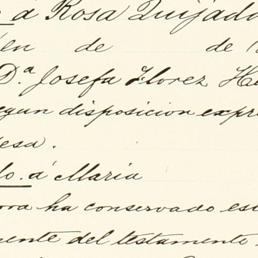 á Rosa Quijado
én de de 1
D.ª Josefa Florez He
egun disposicion expre
esa.
lo. á Maria
ora ha conservado es
ente del testamento